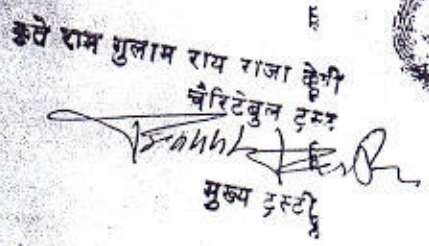 कृते राम गुलाम राय राजा देवी
चैरिटेबुल ट्रस्ट
मुख्य ट्रस्टी